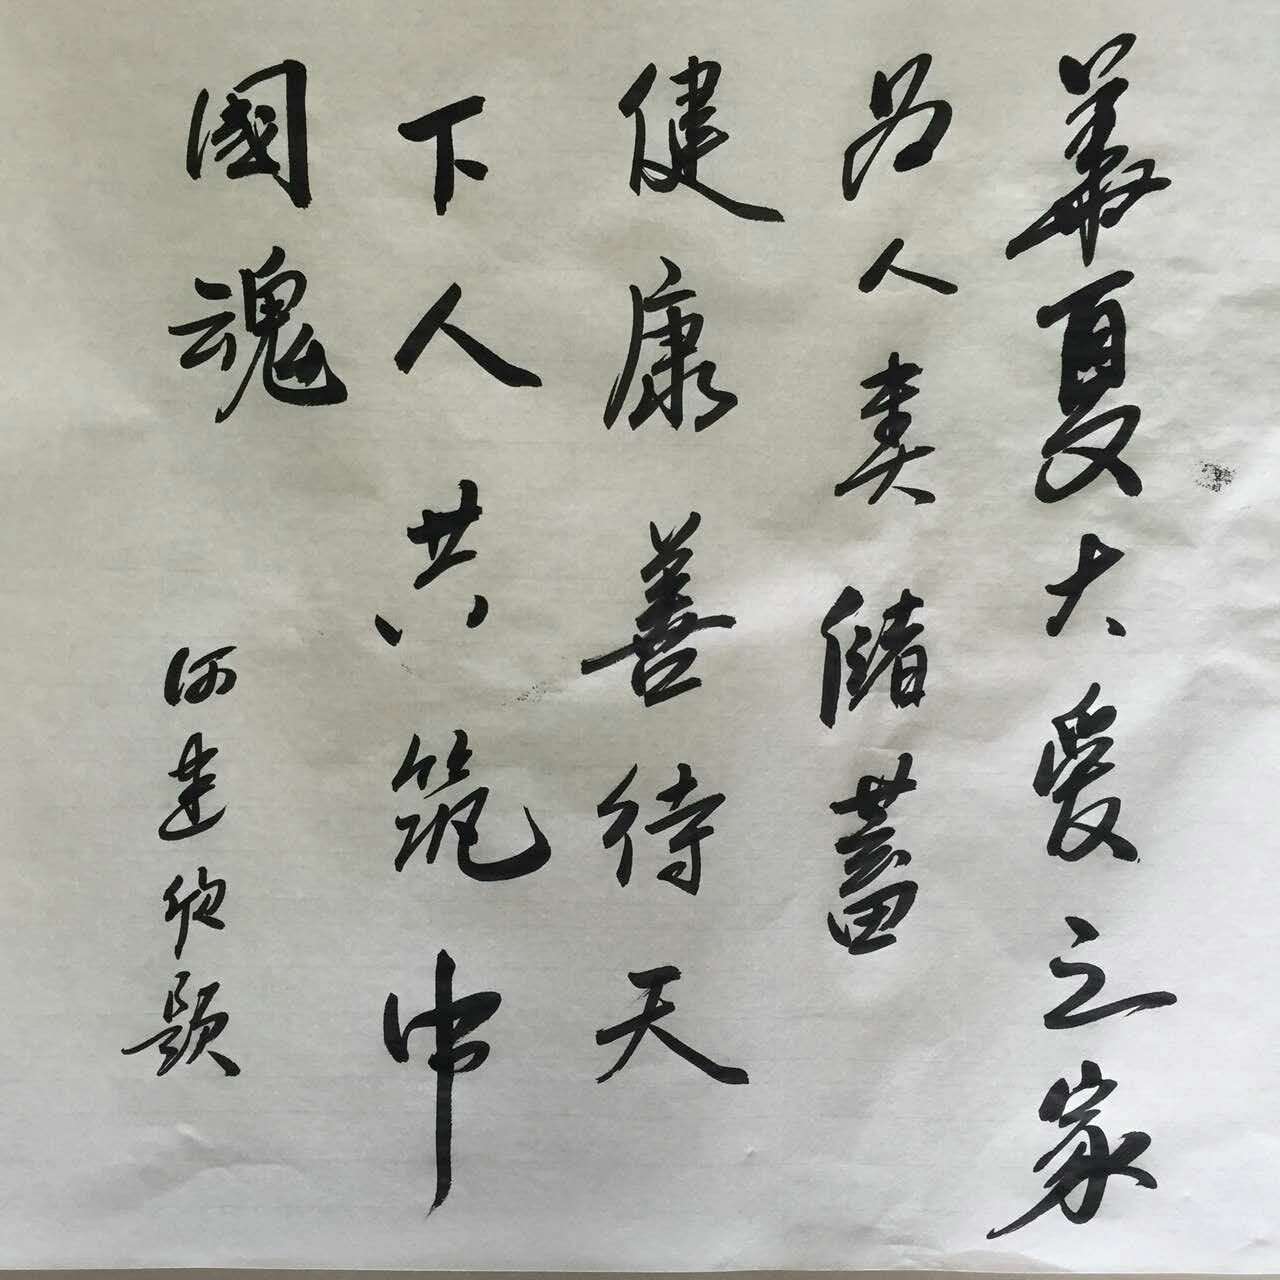 華夏大愛之家
为人类儲蓄
健康善待天
下人共筑中
國魂
何建欣題